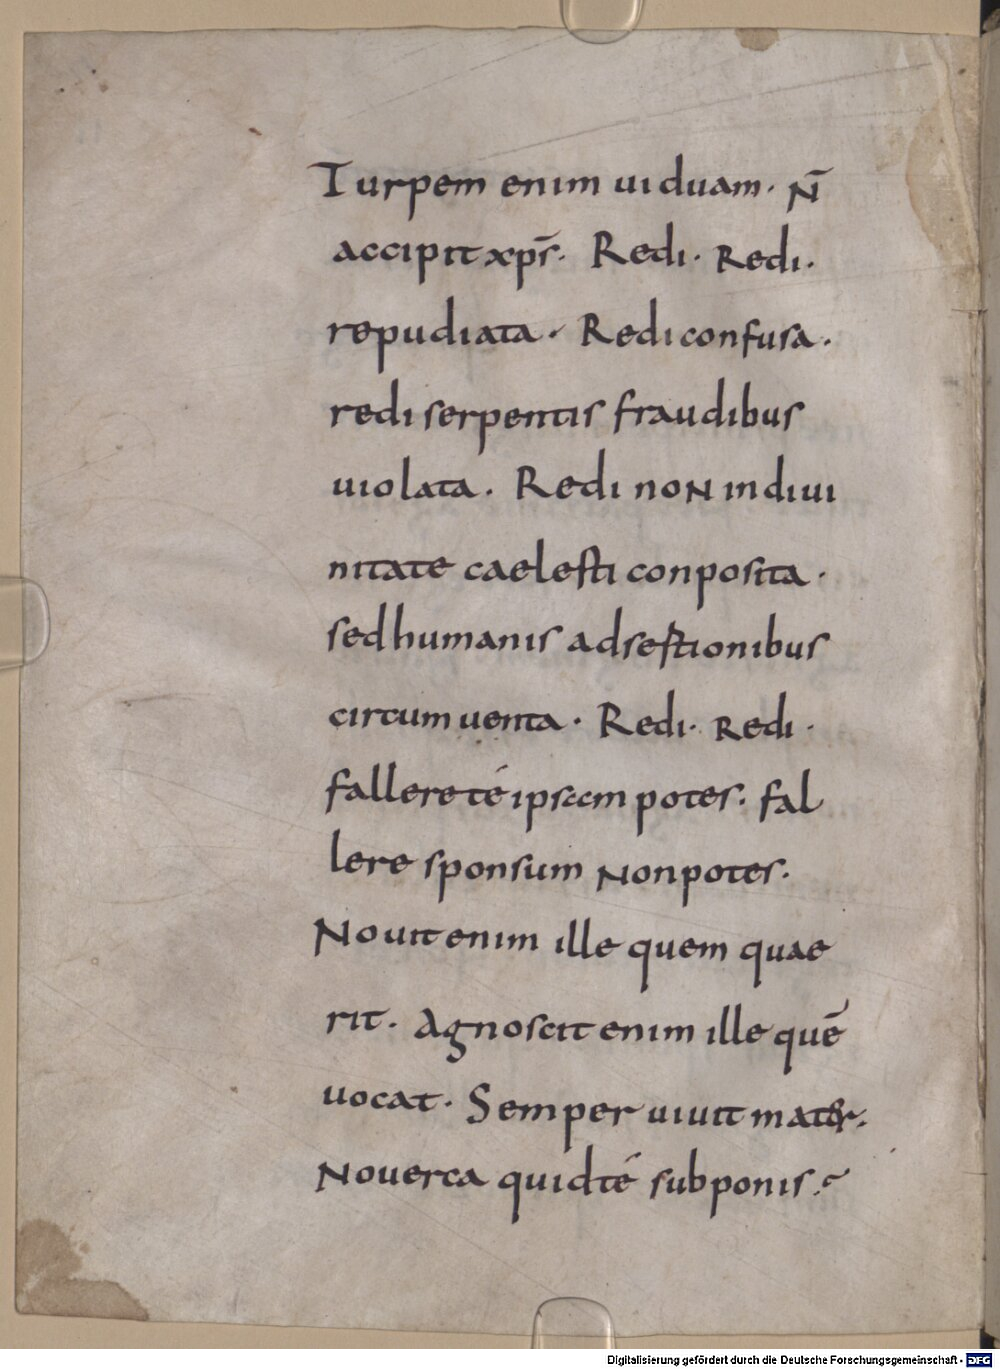 Turpem enim uiduam · n̄
accipit xp̄s · Redi · Redi ·
repudiata · Redi confusa ·
redi serpentis fraudibus
uiolata · Redi non in diui
nitate caelesti conposita ·
sed humanis adsestionibus
circumuenta · Redi · Redi ·
fallere té ipsccm potes · fal
lere sponsum non potes ·
Nouit enim ille quem quae
rit · Agnoscit enim ille quē
uocat · Semper uiuit mater ·
Nouerca quid té subponis ?
Digitalisierung gefördert durch die Deutsche Forschungsgemeinschaft - DFG